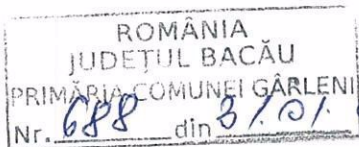 ROMÂNIA
JUDEŢUL BACĂU
PRIMĂRIA COMUNEI GÂRLENI
Nr. 688 din 31.01.